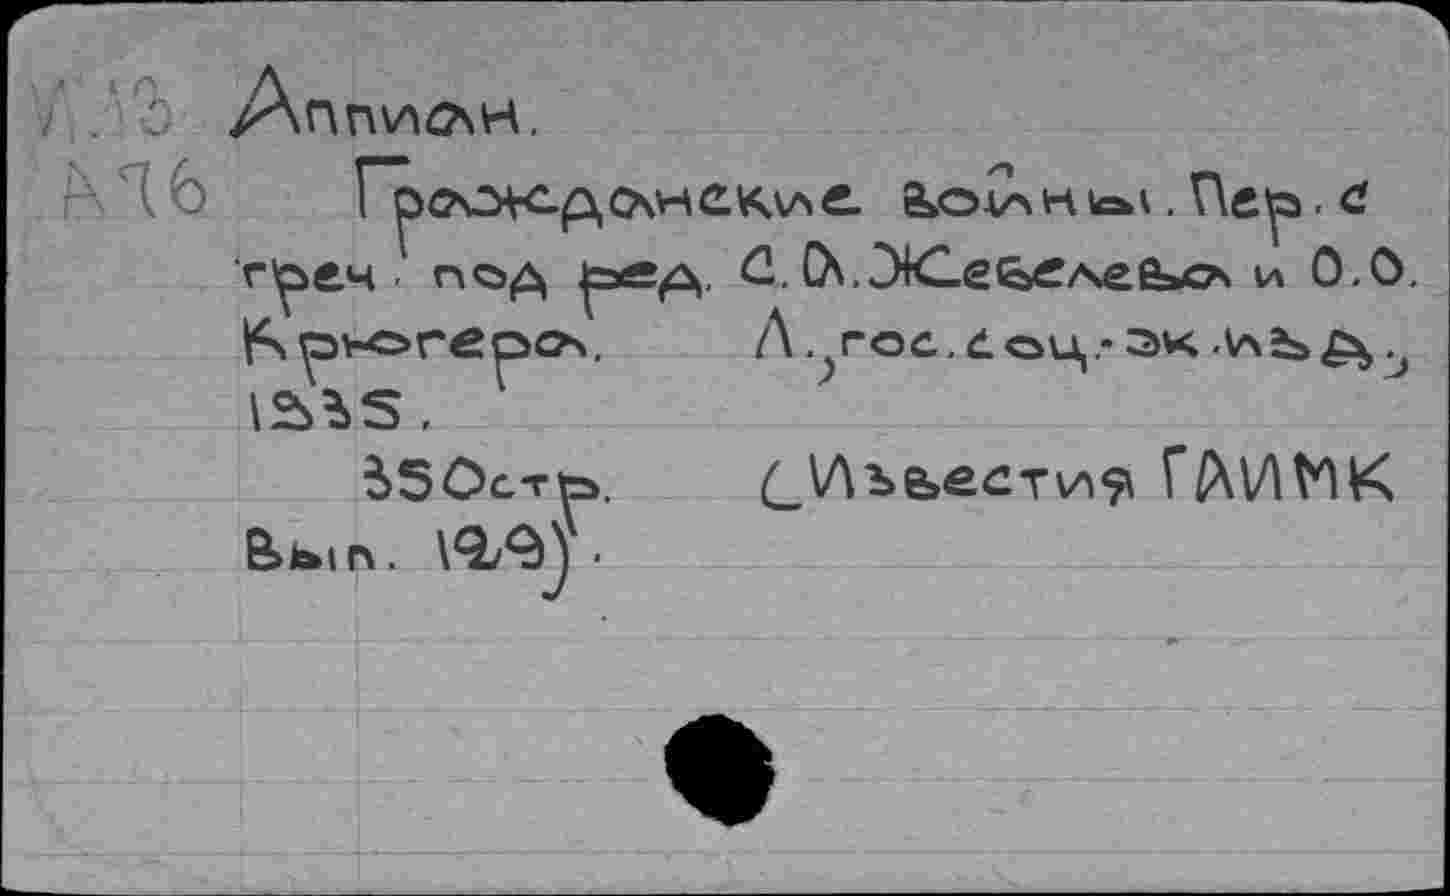 Аппиан.
А76 Гражданские войны. Пер. с
греч. под ред. С.А.Жебелева и О.О.
Крюгера. Л., гос. соц.-эк.изд.,
1935.
350стр. (Известия ГАИМК
Вып. 129).